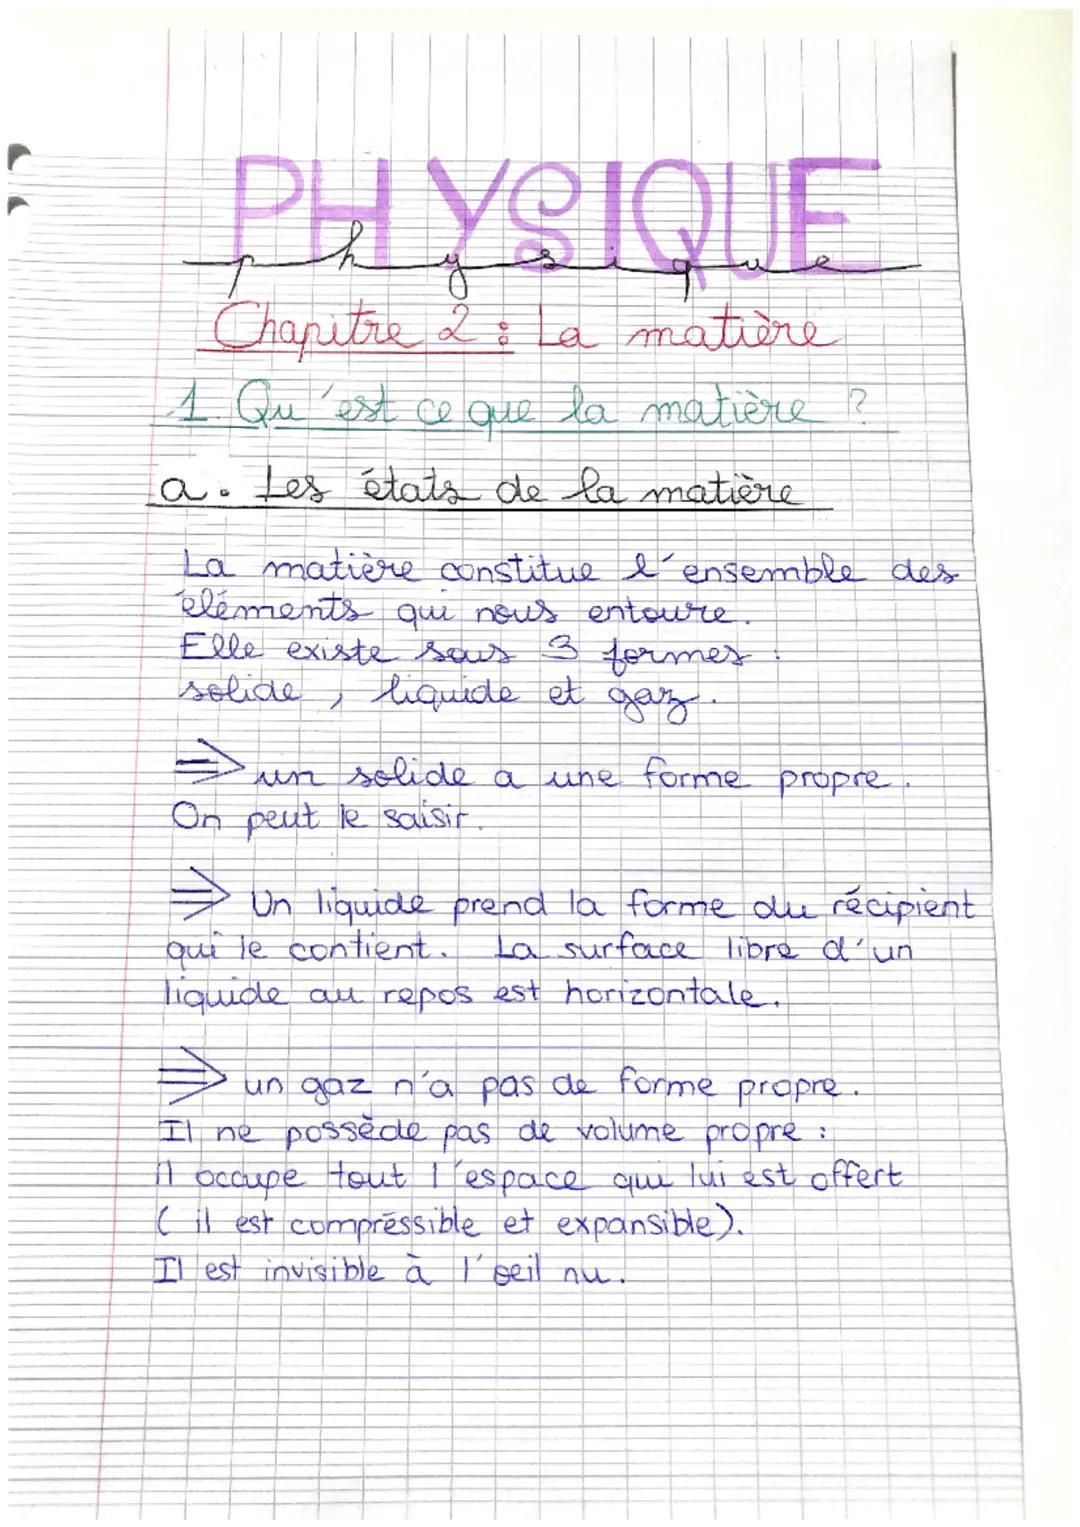 PHYSIQUE
physique
Chapitre 2 : La matière
1. Qu'est ce que la matière ?
a. Les états de la matière
La matière constitue l'ensemble des
éléments qui nous entoure.
Elle existe sous 3 formes :
solide, liquide et gaz.
⇒ un solide a une forme propre.
On peut le saisir.
⇒ Un liquide prend la forme du récipient
qui le contient. La surface libre d'un
liquide au repos est horizontale.
⇒ un gaz n'a pas de forme propre.
Il ne possède pas de volume propre :
il occupe tout l'espace qui lui est offert
( il est compréssible et expansible).
Il est invisible à l'oeil nu.